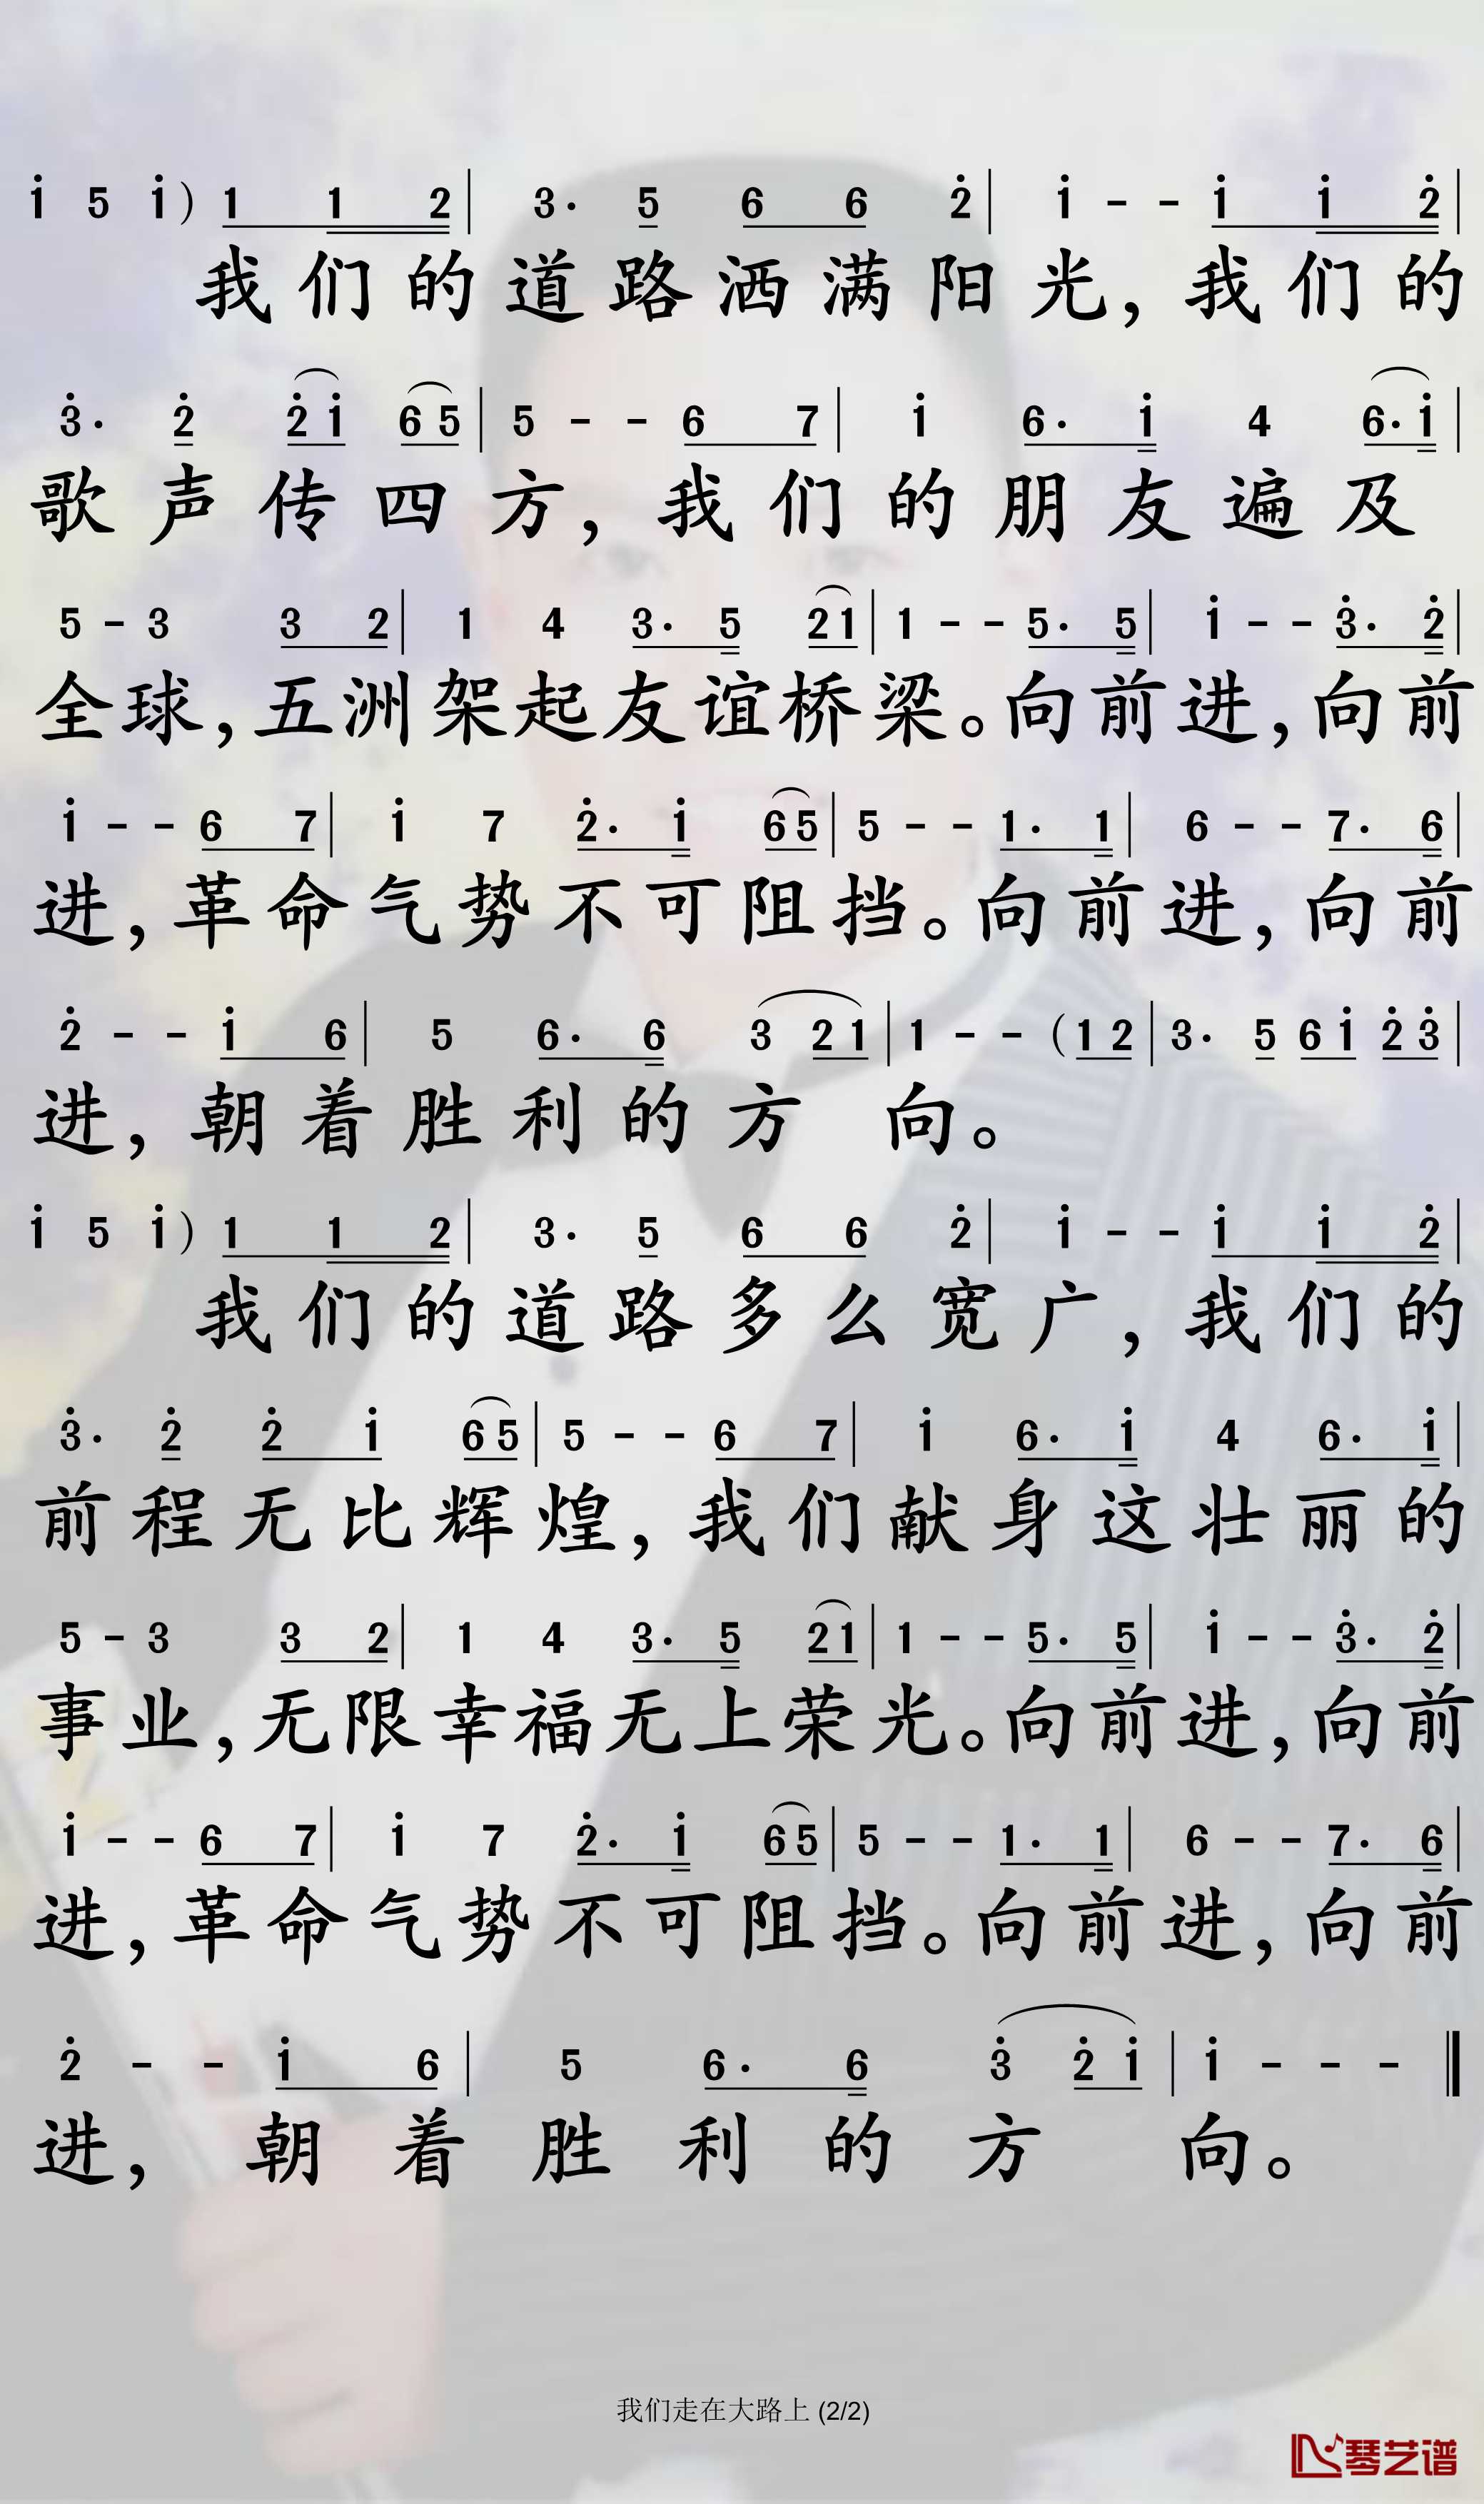 i̇ 5 i̇ ) 1 1 2 | 3· 5 6 6 2̇ | i̇ - - i̇ i̇ 2̇ |
我们的道路洒满阳光，我们的
3̇· 2̇ 2̇ i̇ 6 5 | 5 - - 6 7 | i̇ 6· i̇ 4 6· i̇ |
歌声传四方，我们的朋友遍及
5 - 3 3 2 | 1 4 3· 5 2 1 | 1 - - 5· 5 | i̇ - - 3̇· 2̇ |
全球，五洲架起友谊桥梁。向前进，向前
i̇ - - 6 7 | i̇ 7 2̇· i̇ 6 5 | 5 - - 1· 1 | 6 - - 7· 6 |
进，革命气势不可阻挡。向前进，向前
2̇ - - i̇ 6 | 5 6· 6 3 2 1 | 1 - - ( 1 2 | 3· 5 6 i̇ 2̇ 3̇ |
进，朝着胜利的方向。
i̇ 5 i̇ ) 1 1 2 | 3· 5 6 6 2̇ | i̇ - - i̇ i̇ 2̇ |
我们的道路多么宽广，我们的
3̇· 2̇ 2̇ i̇ 6 5 | 5 - - 6 7 | i̇ 6· i̇ 4 6· i̇ |
前程无比辉煌，我们献身这壮丽的
5 - 3 3 2 | 1 4 3· 5 2 1 | 1 - - 5· 5 | i̇ - - 3̇· 2̇ |
事业，无限幸福无上荣光。向前进，向前
i̇ - - 6 7 | i̇ 7 2̇· i̇ 6 5 | 5 - - 1· 1 | 6 - - 7· 6 |
进，革命气势不可阻挡。向前进，向前
2̇ - - i̇ 6 | 5 6· 6 3̇ 2̇ i̇ | i̇ - - - ‖
进，朝着胜利的方向。
我们走在大路上 (2/2)
琴艺谱